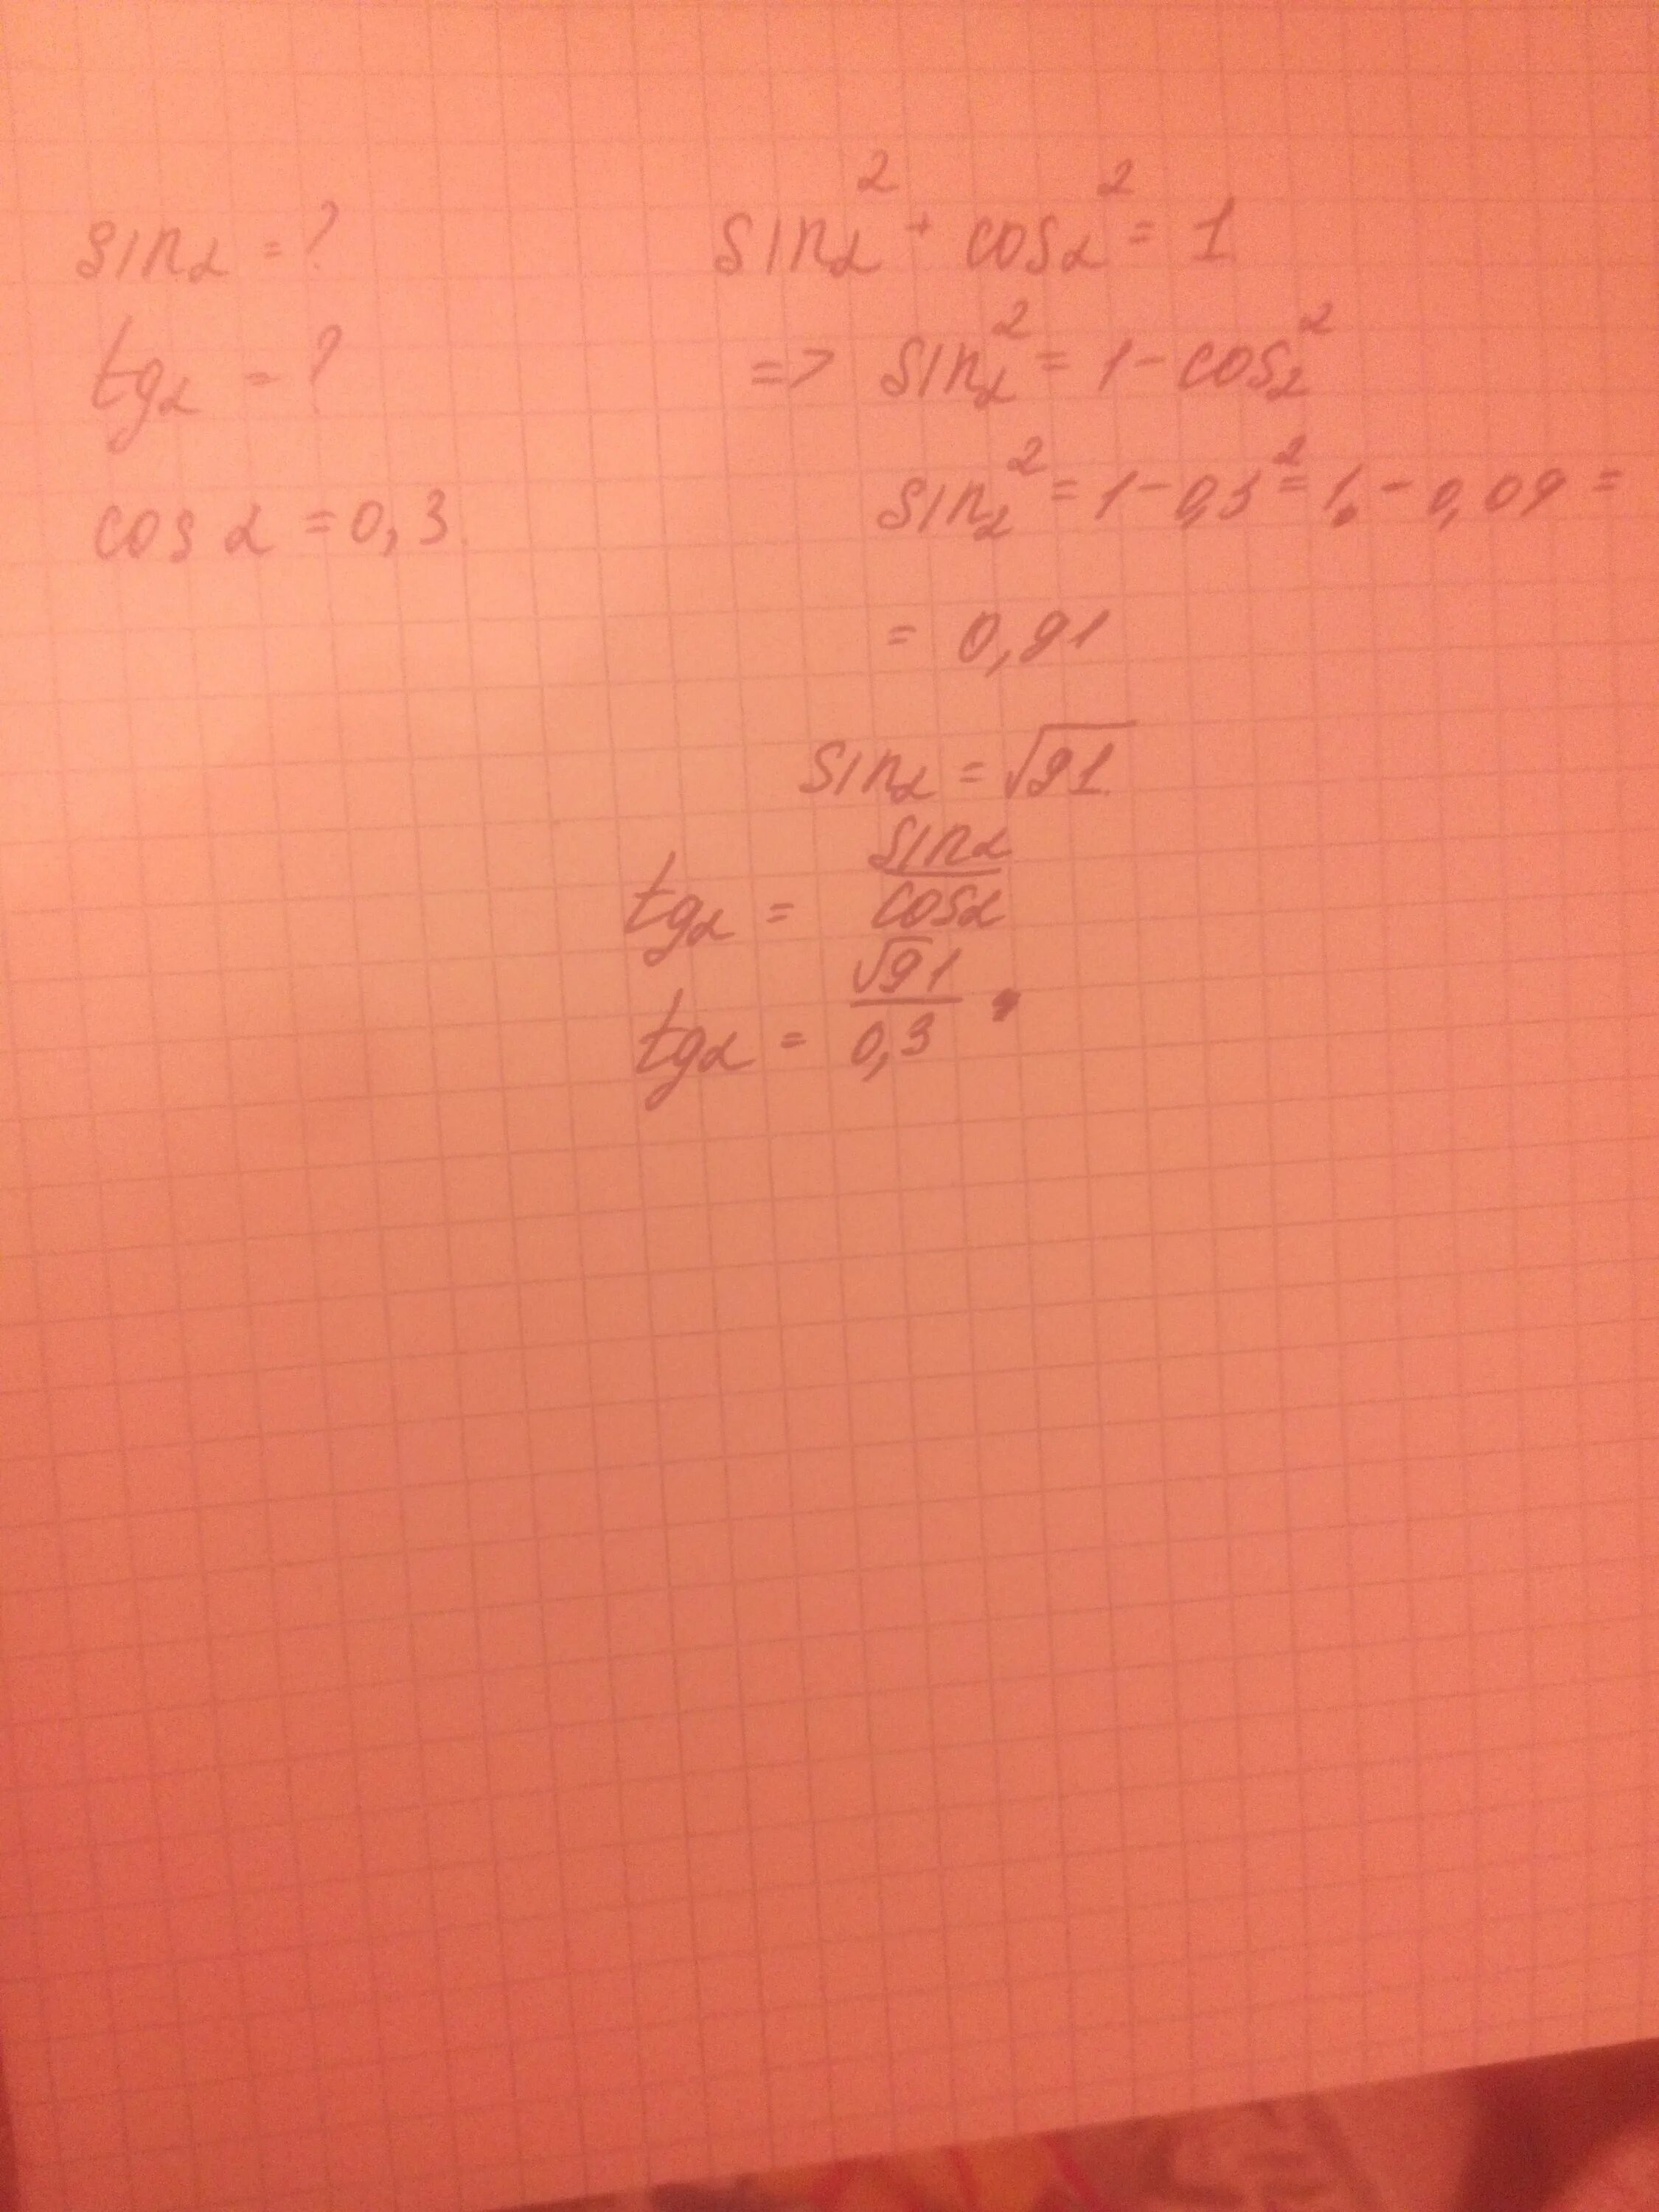 sinα = ?
tgα = ?
cos α = 0,3.
sinα² + cosα² = 1
=> sinα² = 1 - cosα²
sinα² = 1 - 0,3² = 1 - 0,09 =
= 0,91
sinα = √91.
tgα = sinα/cosα
tgα = √91/0,3